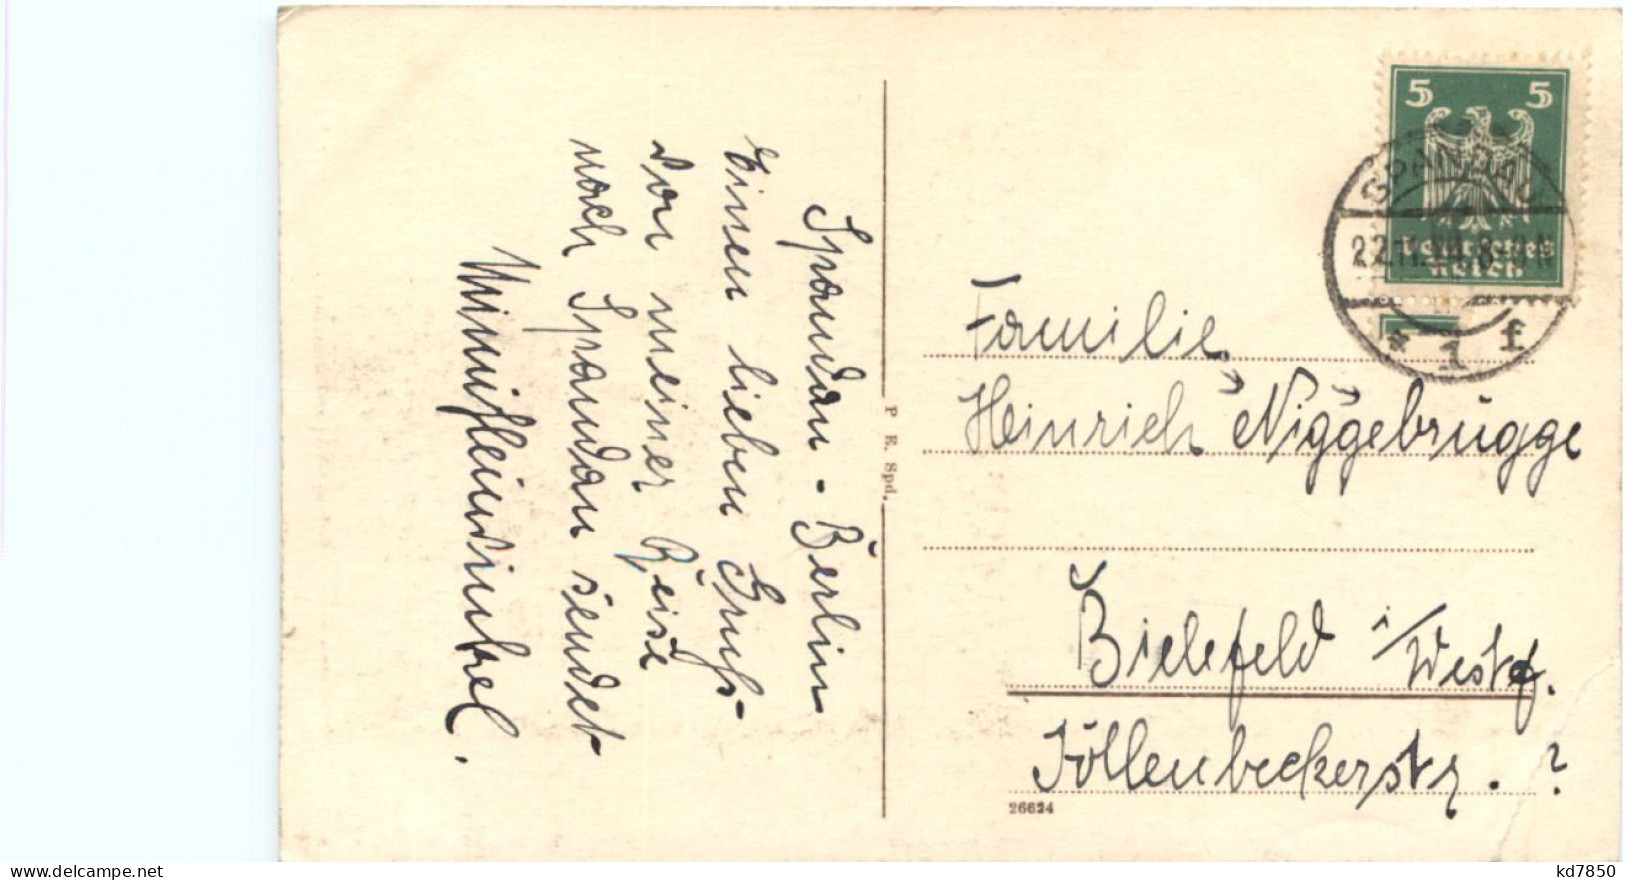 Spandau - Berlin
Einen lieben Gruß
von meiner Reise
nach Spandau sendet
P. E. Spd.
5 5
Deutsches
Reich
SPANDAU
22.11.24. 8-9 N
* 1 f
Familie
Heinrich Niggebrügge
Bielefeld i/Westf.
Jöllenbeckerstr. ?
26624
delcampe.net
kd7850